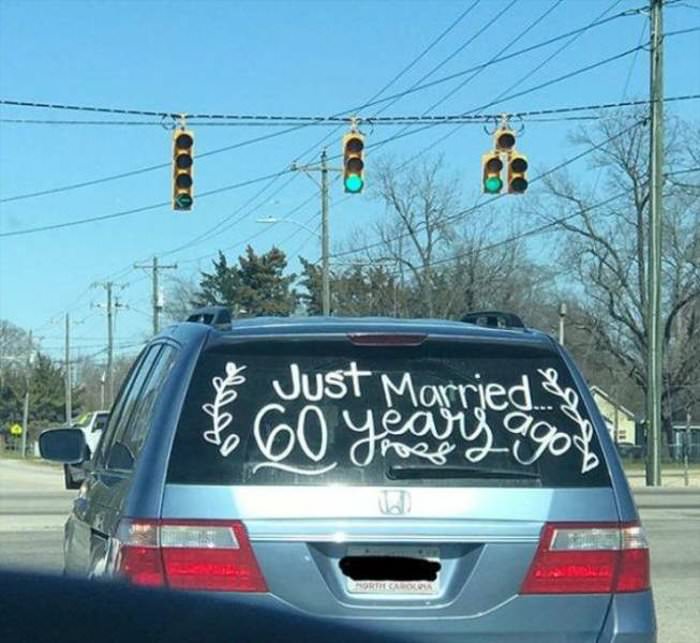 Just Married...
60 years ago
NORTH CAROLINA